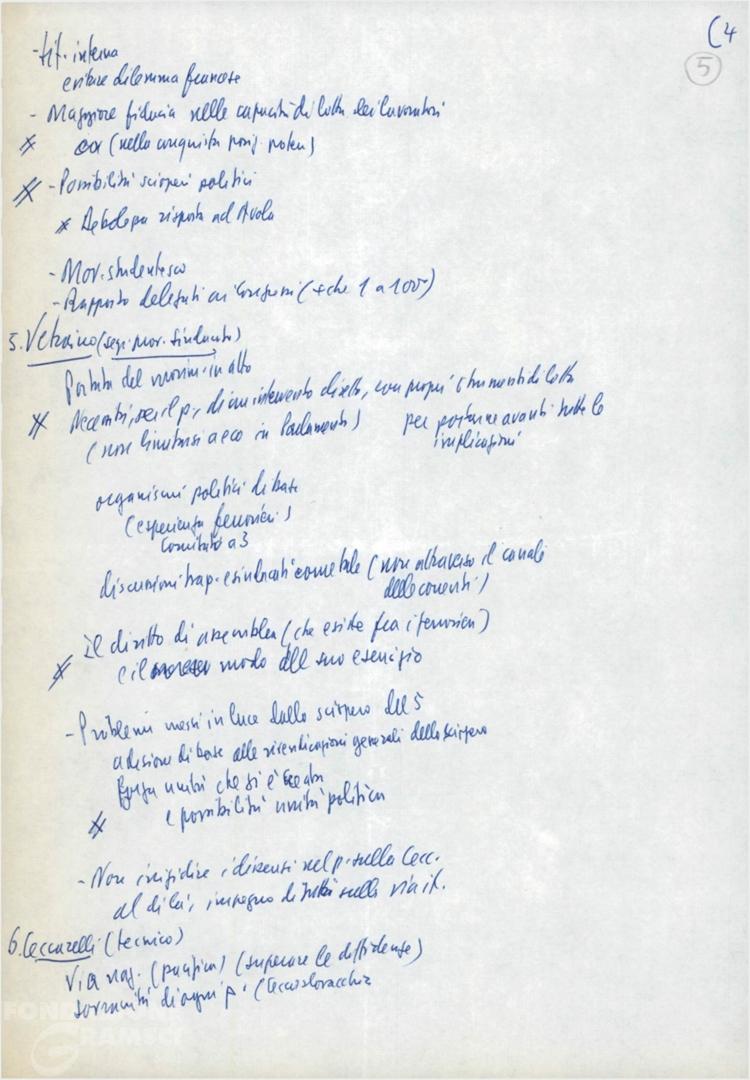 (4
5
- sit. interna
evitare dilemma francese
- Maggiore fiducia nelle capacità di lotta dei lavoratori
(nella conquista posiz. potere)
- Possibilità scioperi politici
* Debolezza risposta ad Avola
- Mov. studentesco
- Rapporto delegati ai Congressi (+ che 1 a 100)
5. Vetraino (segr. prov. sindacato)
Portata del movim. in atto
Necessità, per il p., di un intervento diretto, con propri strumenti di lotta
(non limitarsi a eco in Parlamento) per portarne avanti tutte le
implicazioni
organismi politici di base
(esperienza ferrovieri)
Comitato a 3
discussioni tra p. e sindacati come tale (non attraverso il canale
delle correnti)
il diritto di assemblea (che esiste fra i ferrovieri)
e il modo del suo esercizio
- Problemi messi in luce dallo sciopero del 5
adesione di base alle rivendicazioni generali dello sciopero
Forza unità che si è creata
e possibilità unità politica
- Non irrigidire i dissensi nel p. sulla Cecc.
al di là, impegno di tutti sulla via it.
6. Ceccarelli (tecnico)
Via naz. (pacifica) (superare le diffidenze)
sovranità di ogni p. (Cecoslovacchia
FONDAZIONE
GRAMSCI